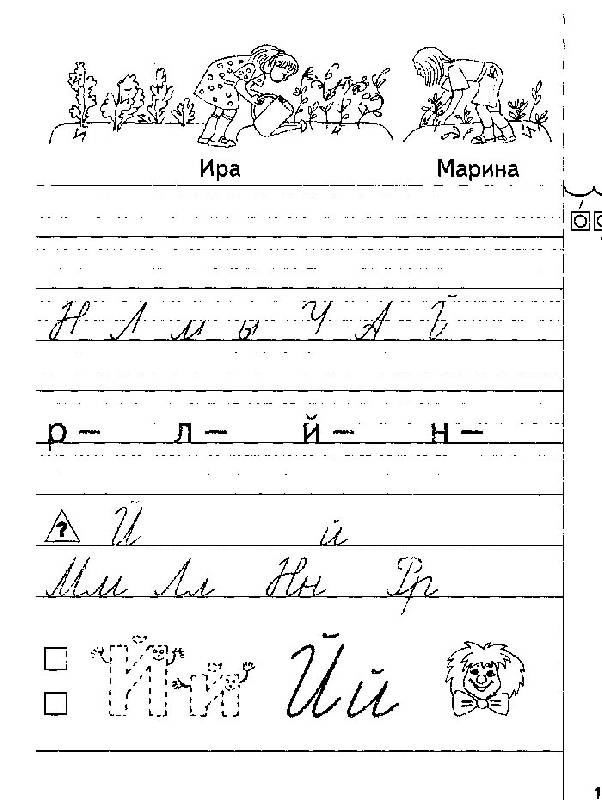 Ира Марина
Н Л м ы Ч А
р – л – й – н –
? Й й
Мм Лл Нн Рр
Й й Й й
1